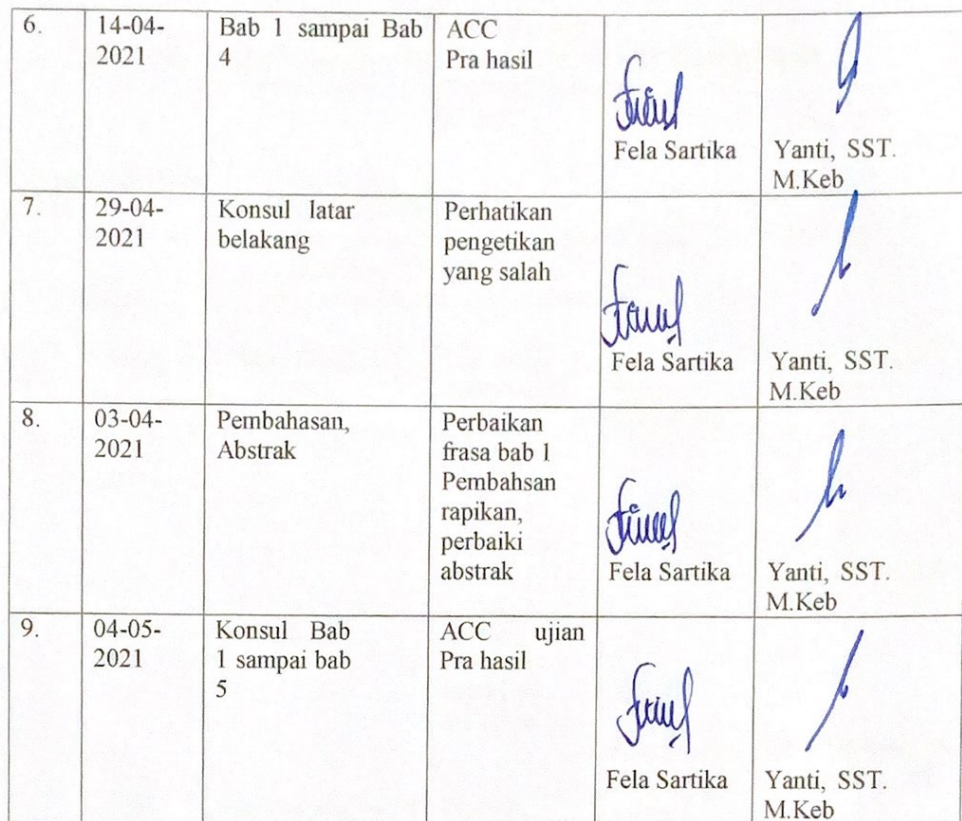 6.
14-04-
2021
Bab 1 sampai Bab
4
ACC
Pra hasil
Fela Sartika
Yanti, SST.
M.Keb
7.
29-04-
2021
Konsul latar
belakang
Perhatikan
pengetikan
yang salah
Fela Sartika
Yanti, SST.
M.Keb
8.
03-04-
2021
Pembahasan,
Abstrak
Perbaikan
frasa bab 1
Pembahsan
rapikan,
perbaiki
abstrak
Fela Sartika
Yanti, SST.
M.Keb
9.
04-05-
2021
Konsul Bab
1 sampai bab
5
ACC ujian
Pra hasil
Fela Sartika
Yanti, SST.
M.Keb